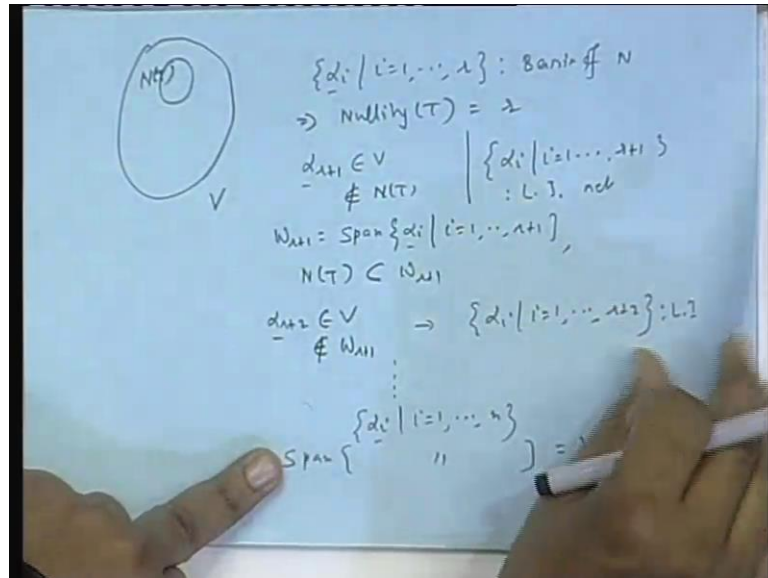 N(T)
V
{αi | i=1, ..., r} : Basis of N
⇒ Nullity(T) = r
αr+1 ∈ V
∉ N(T)
{αi | i=1..., r+1}
: L.I. set
Wr+1 = Span{αi | i=1, .., r+1},
N(T) ⊂ Wr+1
αr+2 ∈ V → {αi | i=1, ..., r+2} : L.I
∉ Wr+1
{αi | i=1, ..., n}
Span{ " } =